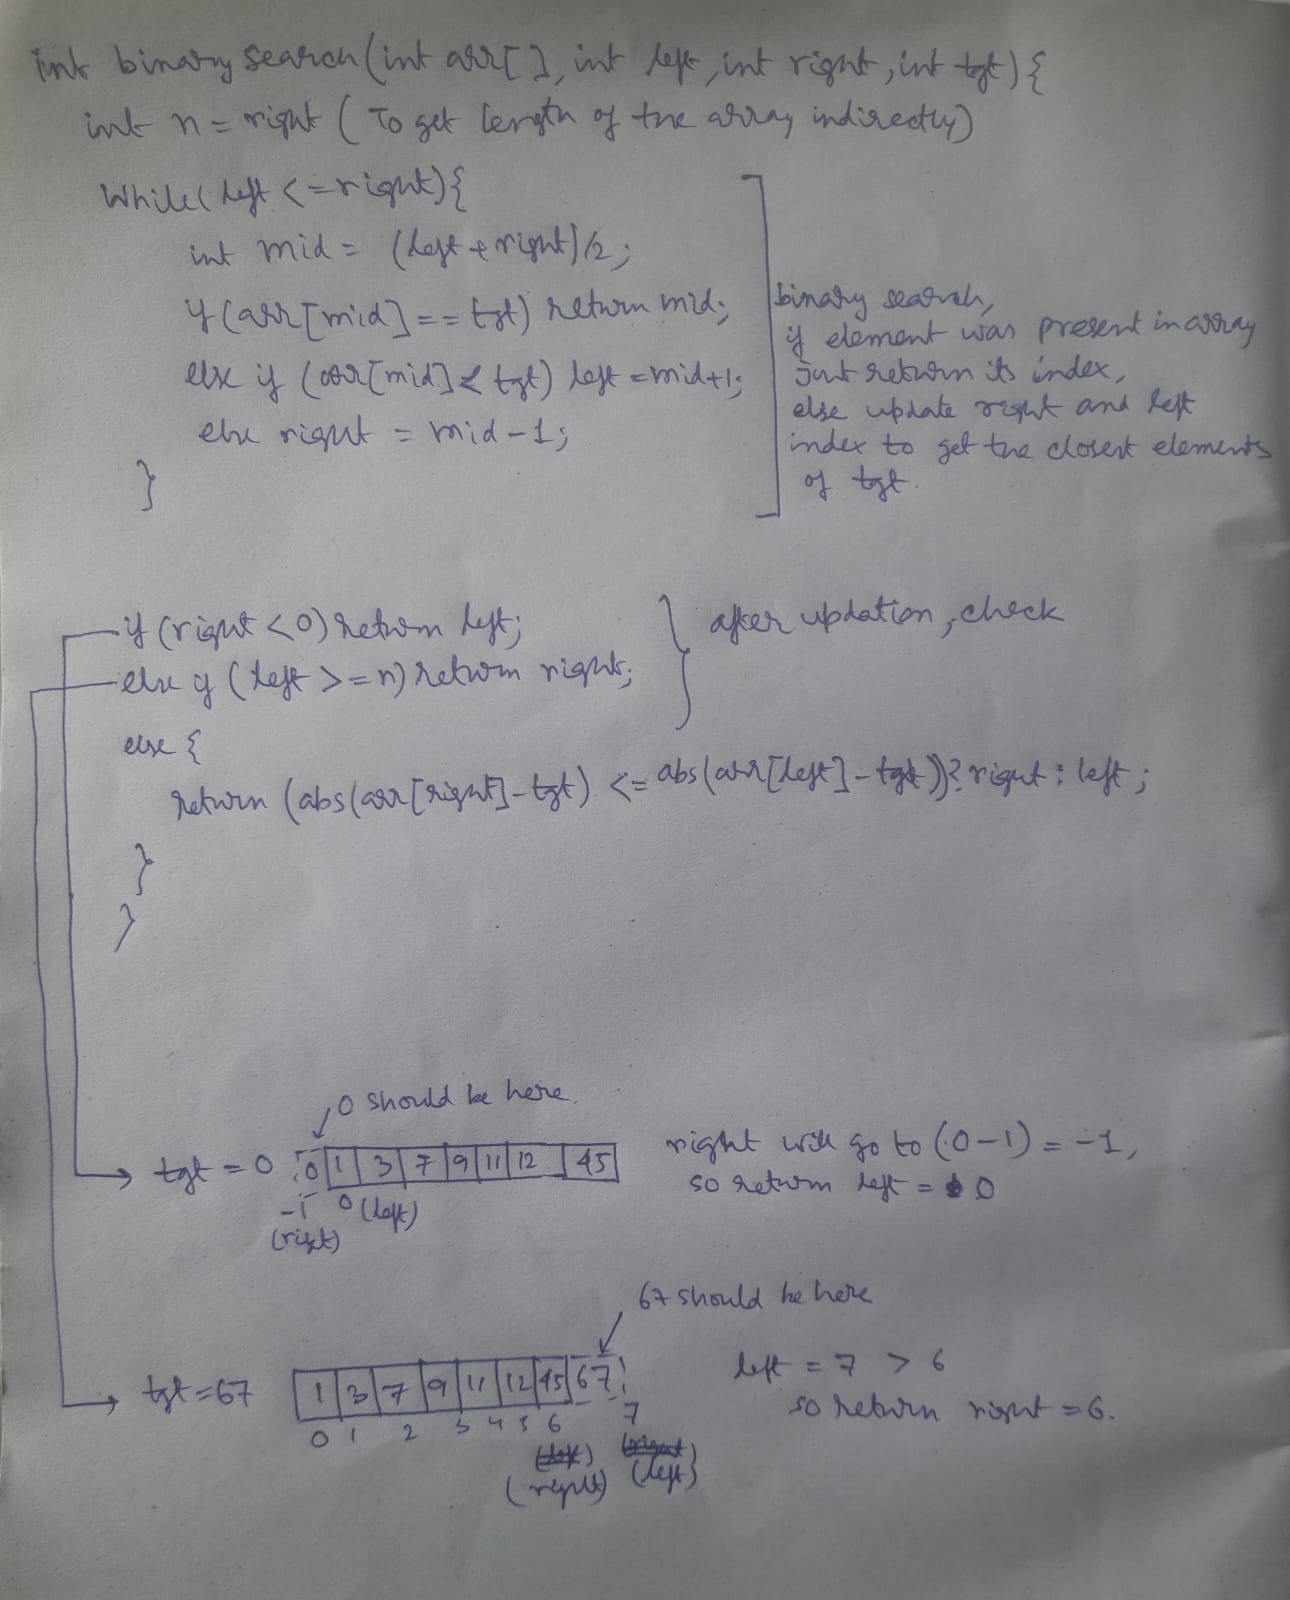 int binary search(int arr[], int left, int right, int tgt){
int n = right ( To get length of the array indirectly)
While( left <= right){
int mid = (left + right)/2;
if (arr[mid] == tgt) return mid;
else if (arr[mid] < tgt) left = mid+1;
else right = mid-1;
}
binary search,
if element was present in array
just return its index,
else update right and left
index to get the closest elements
of tgt.
if (right < 0) return left;
else if (left >= n) return right;
after updation, check
else {
return (abs(arr[right]-tgt) <= abs(arr[left]-tgt))? right : left ;
}
}
0 should be here.
tgt = 0 0 1 3 7 9 11 12 45
-1 0 (left)
(right)
right will go to (0-1) = -1,
so return left = 0
67 should be here
tgt = 67 1 3 7 9 11 12 45 67
0 1 2 3 4 5 6 7
(right) (left)
left = 7 > 6
so return right = 6.